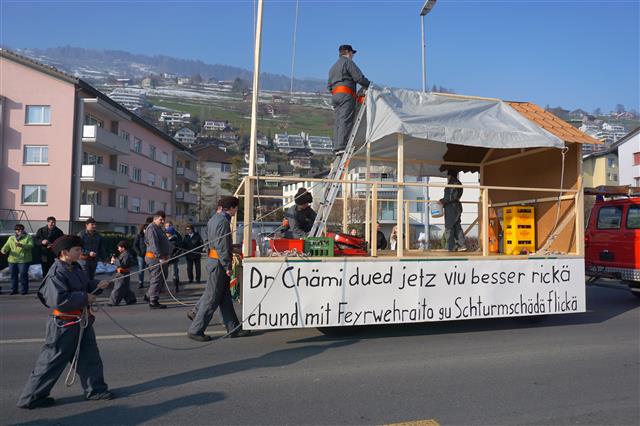 Dr Chämi dued jetz viu besser rickä
chund mit Feyrwehraito gu Schturmschädä flickä